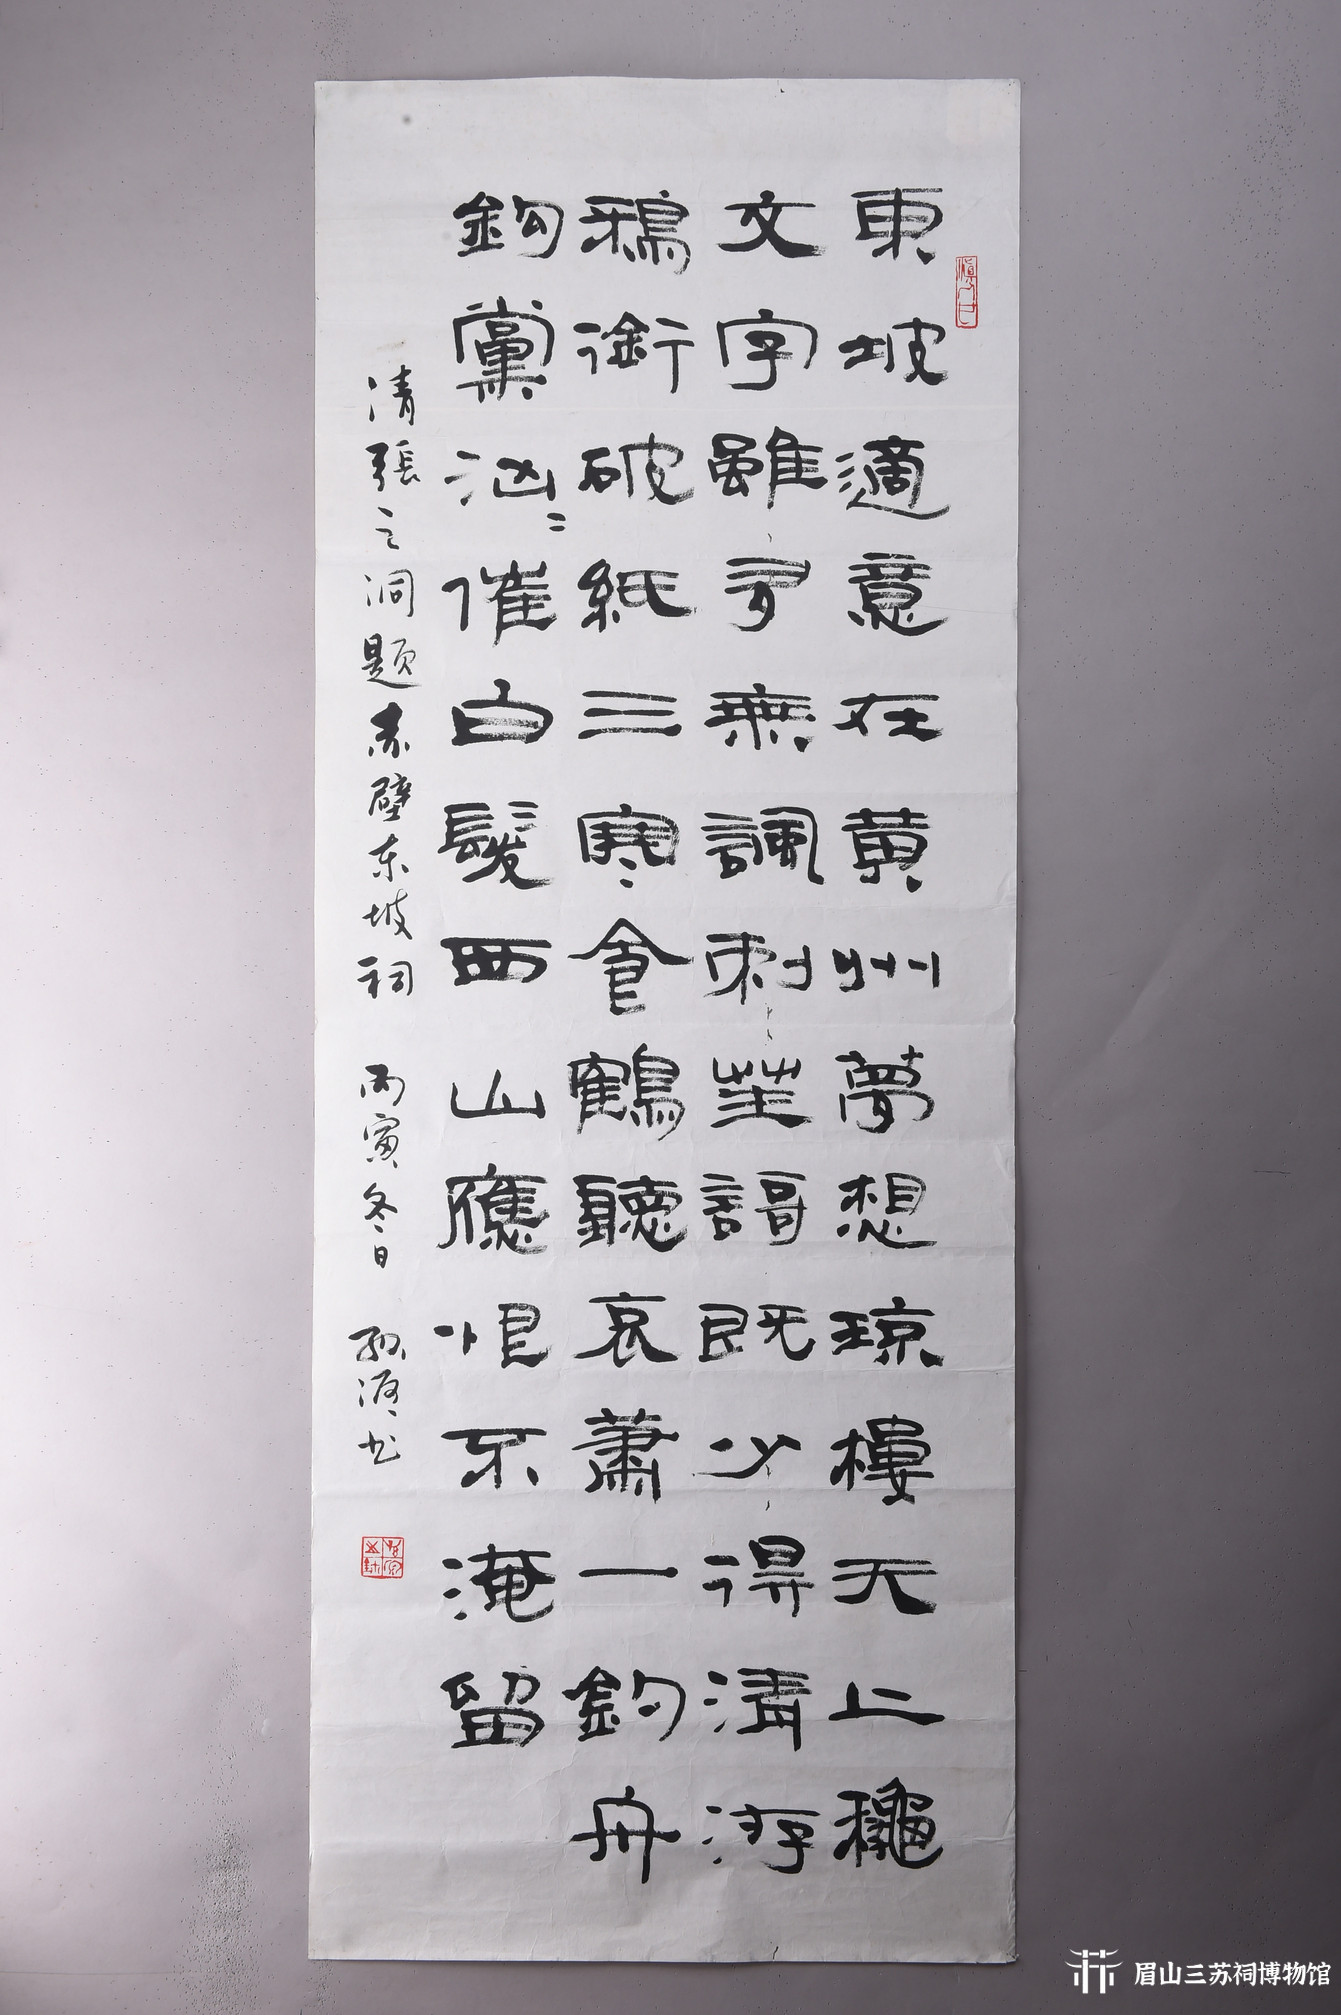 東坡適意在黄州夢想琼樓天上龝
文字雖多無諷刺笙謌既少得清游
鴉銜破紙三寒食鶴聽哀蕭一釣舟
鈎黨汹二催白髮西山應恨不淹留
清張之洞題赤壁东坡祠 丙寅冬日 书
眉山三苏祠博物馆